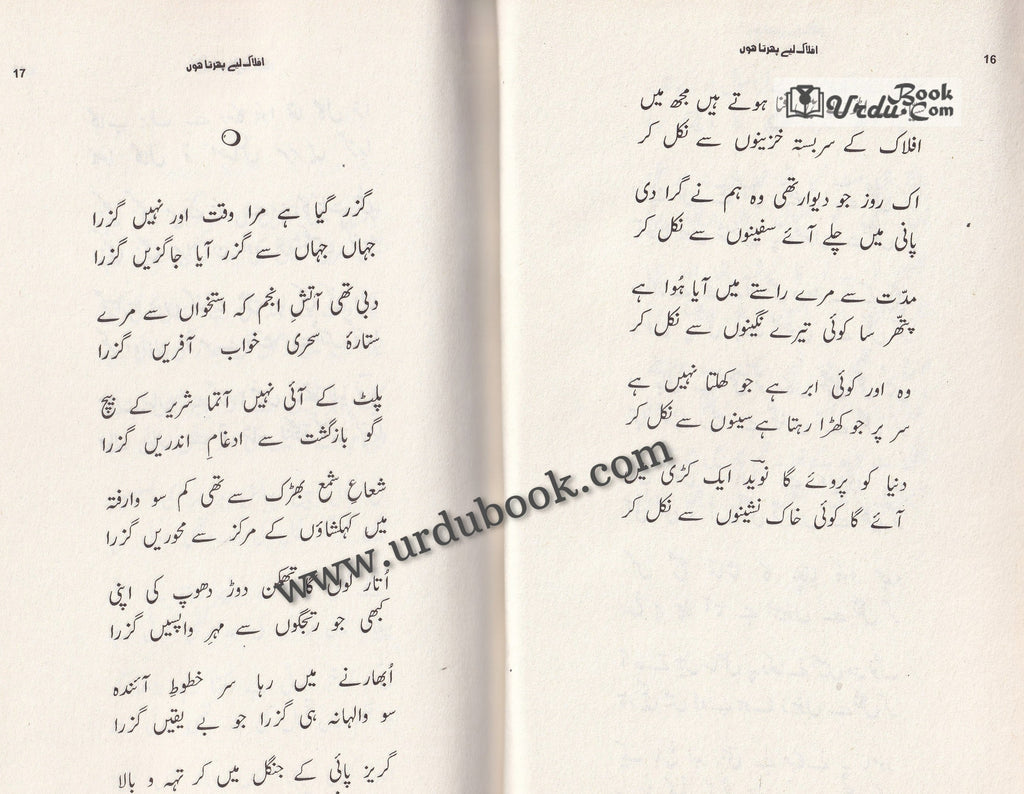 افلاک لیے پھرتا ھوں
16
Urdu Book.Com
ہوتے ہیں مجھ میں
افلاک کے سربستہ خزینوں سے نکل کر
اک روز جو دیوار تھی وہ ہم نے گرا دی
پانی میں چلے آئے سفینوں سے نکل کر
مدّت سے مرے راستے میں آیا ہُوا ہے
پتھّر سا کوئی تیرے نگینوں سے نکل کر
وہ اور کوئی ابر ہے جو کھلتا نہیں ہے
سر پر جو کھڑا رہتا ہے سینوں سے نکل کر
دنیا کو پروئے گا نویدؔ ایک کڑی میں
آئے گا کوئی خاک نشینوں سے نکل کر
افلاک لیے پھرتا ھوں
17
گزر گیا ہے مرا وقت اور نہیں گزرا
جہاں جہاں سے گزر آیا جاگزیں گزرا
دبی تھی آتشِ انجم کہ استخواں سے مرے
ستارۂ سحری خواب آفریں گزرا
پلٹ کے آئی نہیں آتما شریر کے بیچ
گو بازگشت سے ادغامِ اندریں گزرا
شعاعِ شمع بھڑک سے تھی کم سو وارفتہ
میں کہکشاؤں کے مرکز سے محوریں گزرا
اُتار لوں گا تھکن دوڑ دھوپ کی اپنی
کبھی جو رتجگوں سے مہرِ واپسیں گزرا
اُبھارنے میں رہا سر خطوطِ آئندہ
سو والہانہ ہی گزرا جو بے یقیں گزرا
گریز پائی کے جنگل میں کر تہہ و بالا
www.urdubook.com